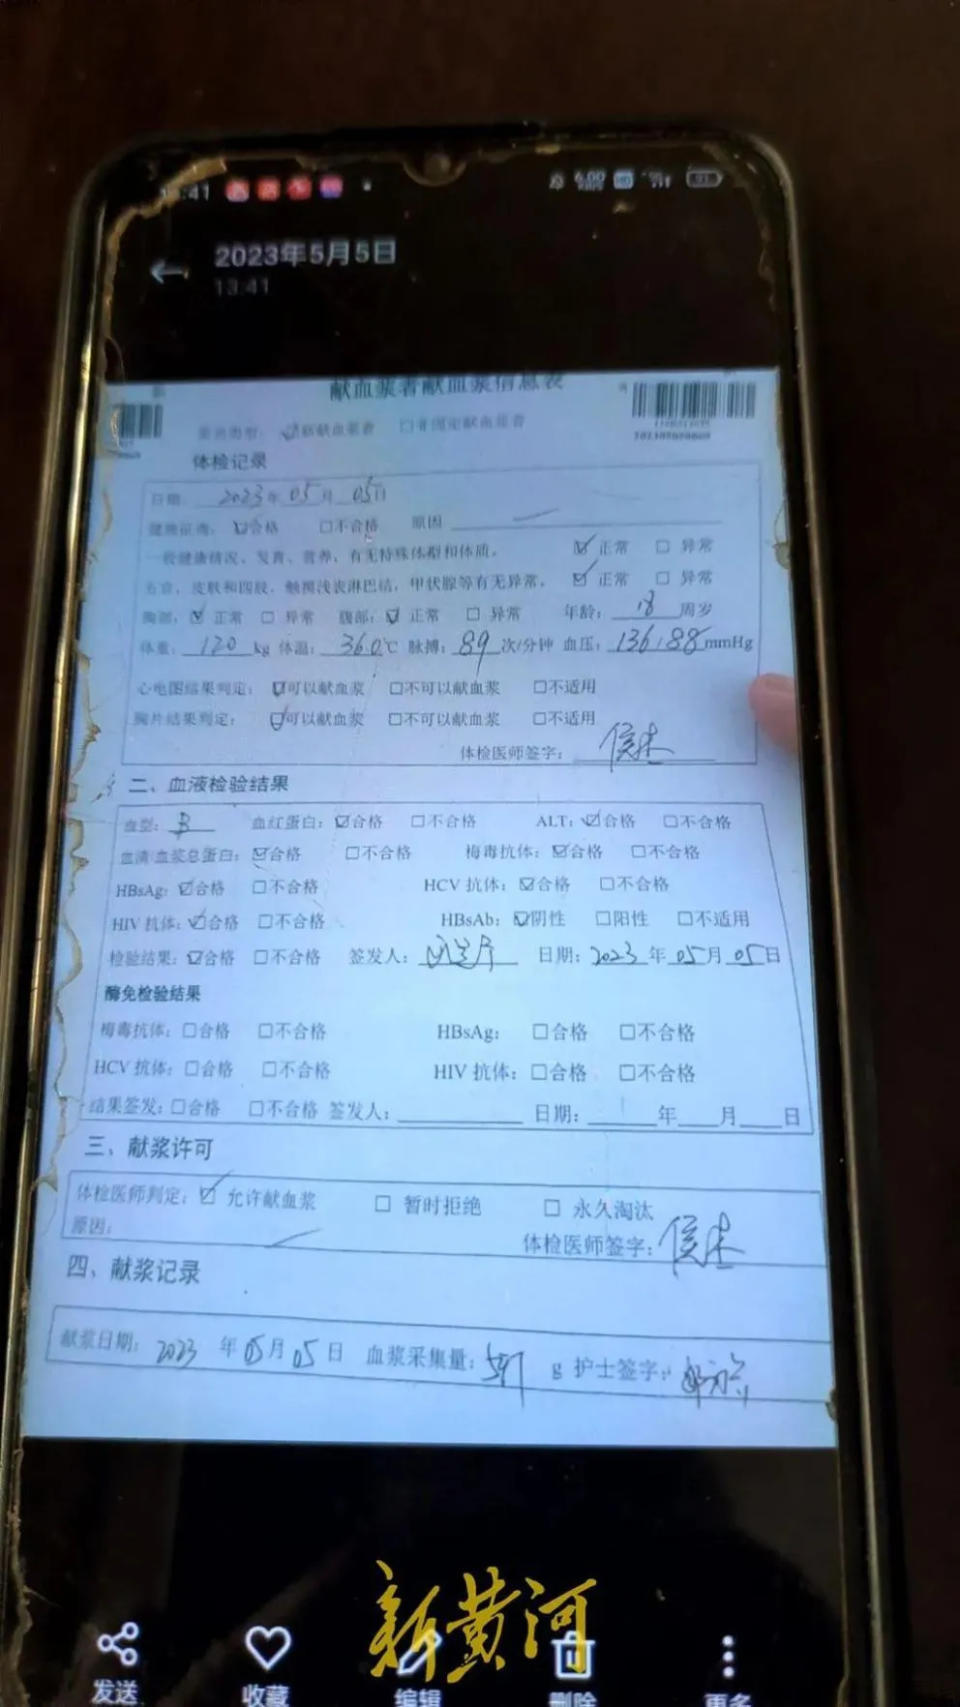 :41 6.00
2023年5月5日
13:41
献血浆者献血浆信息表
体检记录
日期: 2023年05月05日
健康征询: ☑合格 □不合格 原因
一般健康情况、发育、营养、有无特殊体型和体质。 ☑正常 □异常
五官、皮肤和四肢、触摸浅表淋巴结、甲状腺等有无异常。 ☑正常 □异常
胸部: ☑正常 □异常 腹部: ☑正常 □异常 年龄: 18 周岁
体重: 120 kg 体温: 36.0℃ 脉搏: 89 次/分钟 血压: 136/88 mmHg
心电图结果判定: ☑可以献血浆 □不可以献血浆 □不适用
胸片结果判定: ☑可以献血浆 □不可以献血浆 □不适用
体检医师签字:
二、血液检验结果
血型: B 血红蛋白: ☑合格 □不合格 ALT: ☑合格 □不合格
血清/血浆总蛋白: ☑合格 □不合格 梅毒抗体: ☑合格 □不合格
HBsAg: ☑合格 □不合格 HCV 抗体: ☑合格 □不合格
HIV 抗体: ☑合格 □不合格 HBsAb: ☑阴性 □阳性 □不适用
检验结果: ☑合格 □不合格 签发人: 日期: 2023 年 05 月 05 日
酶免检验结果
梅毒抗体: □合格 □不合格 HBsAg: □合格 □不合格
HCV 抗体: □合格 □不合格 HIV 抗体: □合格 □不合格
结果签发: □合格 □不合格 签发人: 日期: 年 月 日
三、献浆许可
体检医师判定: ☑允许献血浆 □暂时拒绝 □永久淘汰
原因: 体检医师签字:
四、献浆记录
献浆日期: 2023 年 05 月 05 日 血浆采集量: g 护士签字:
新黄河
发送 收藏 编辑 删除 更多